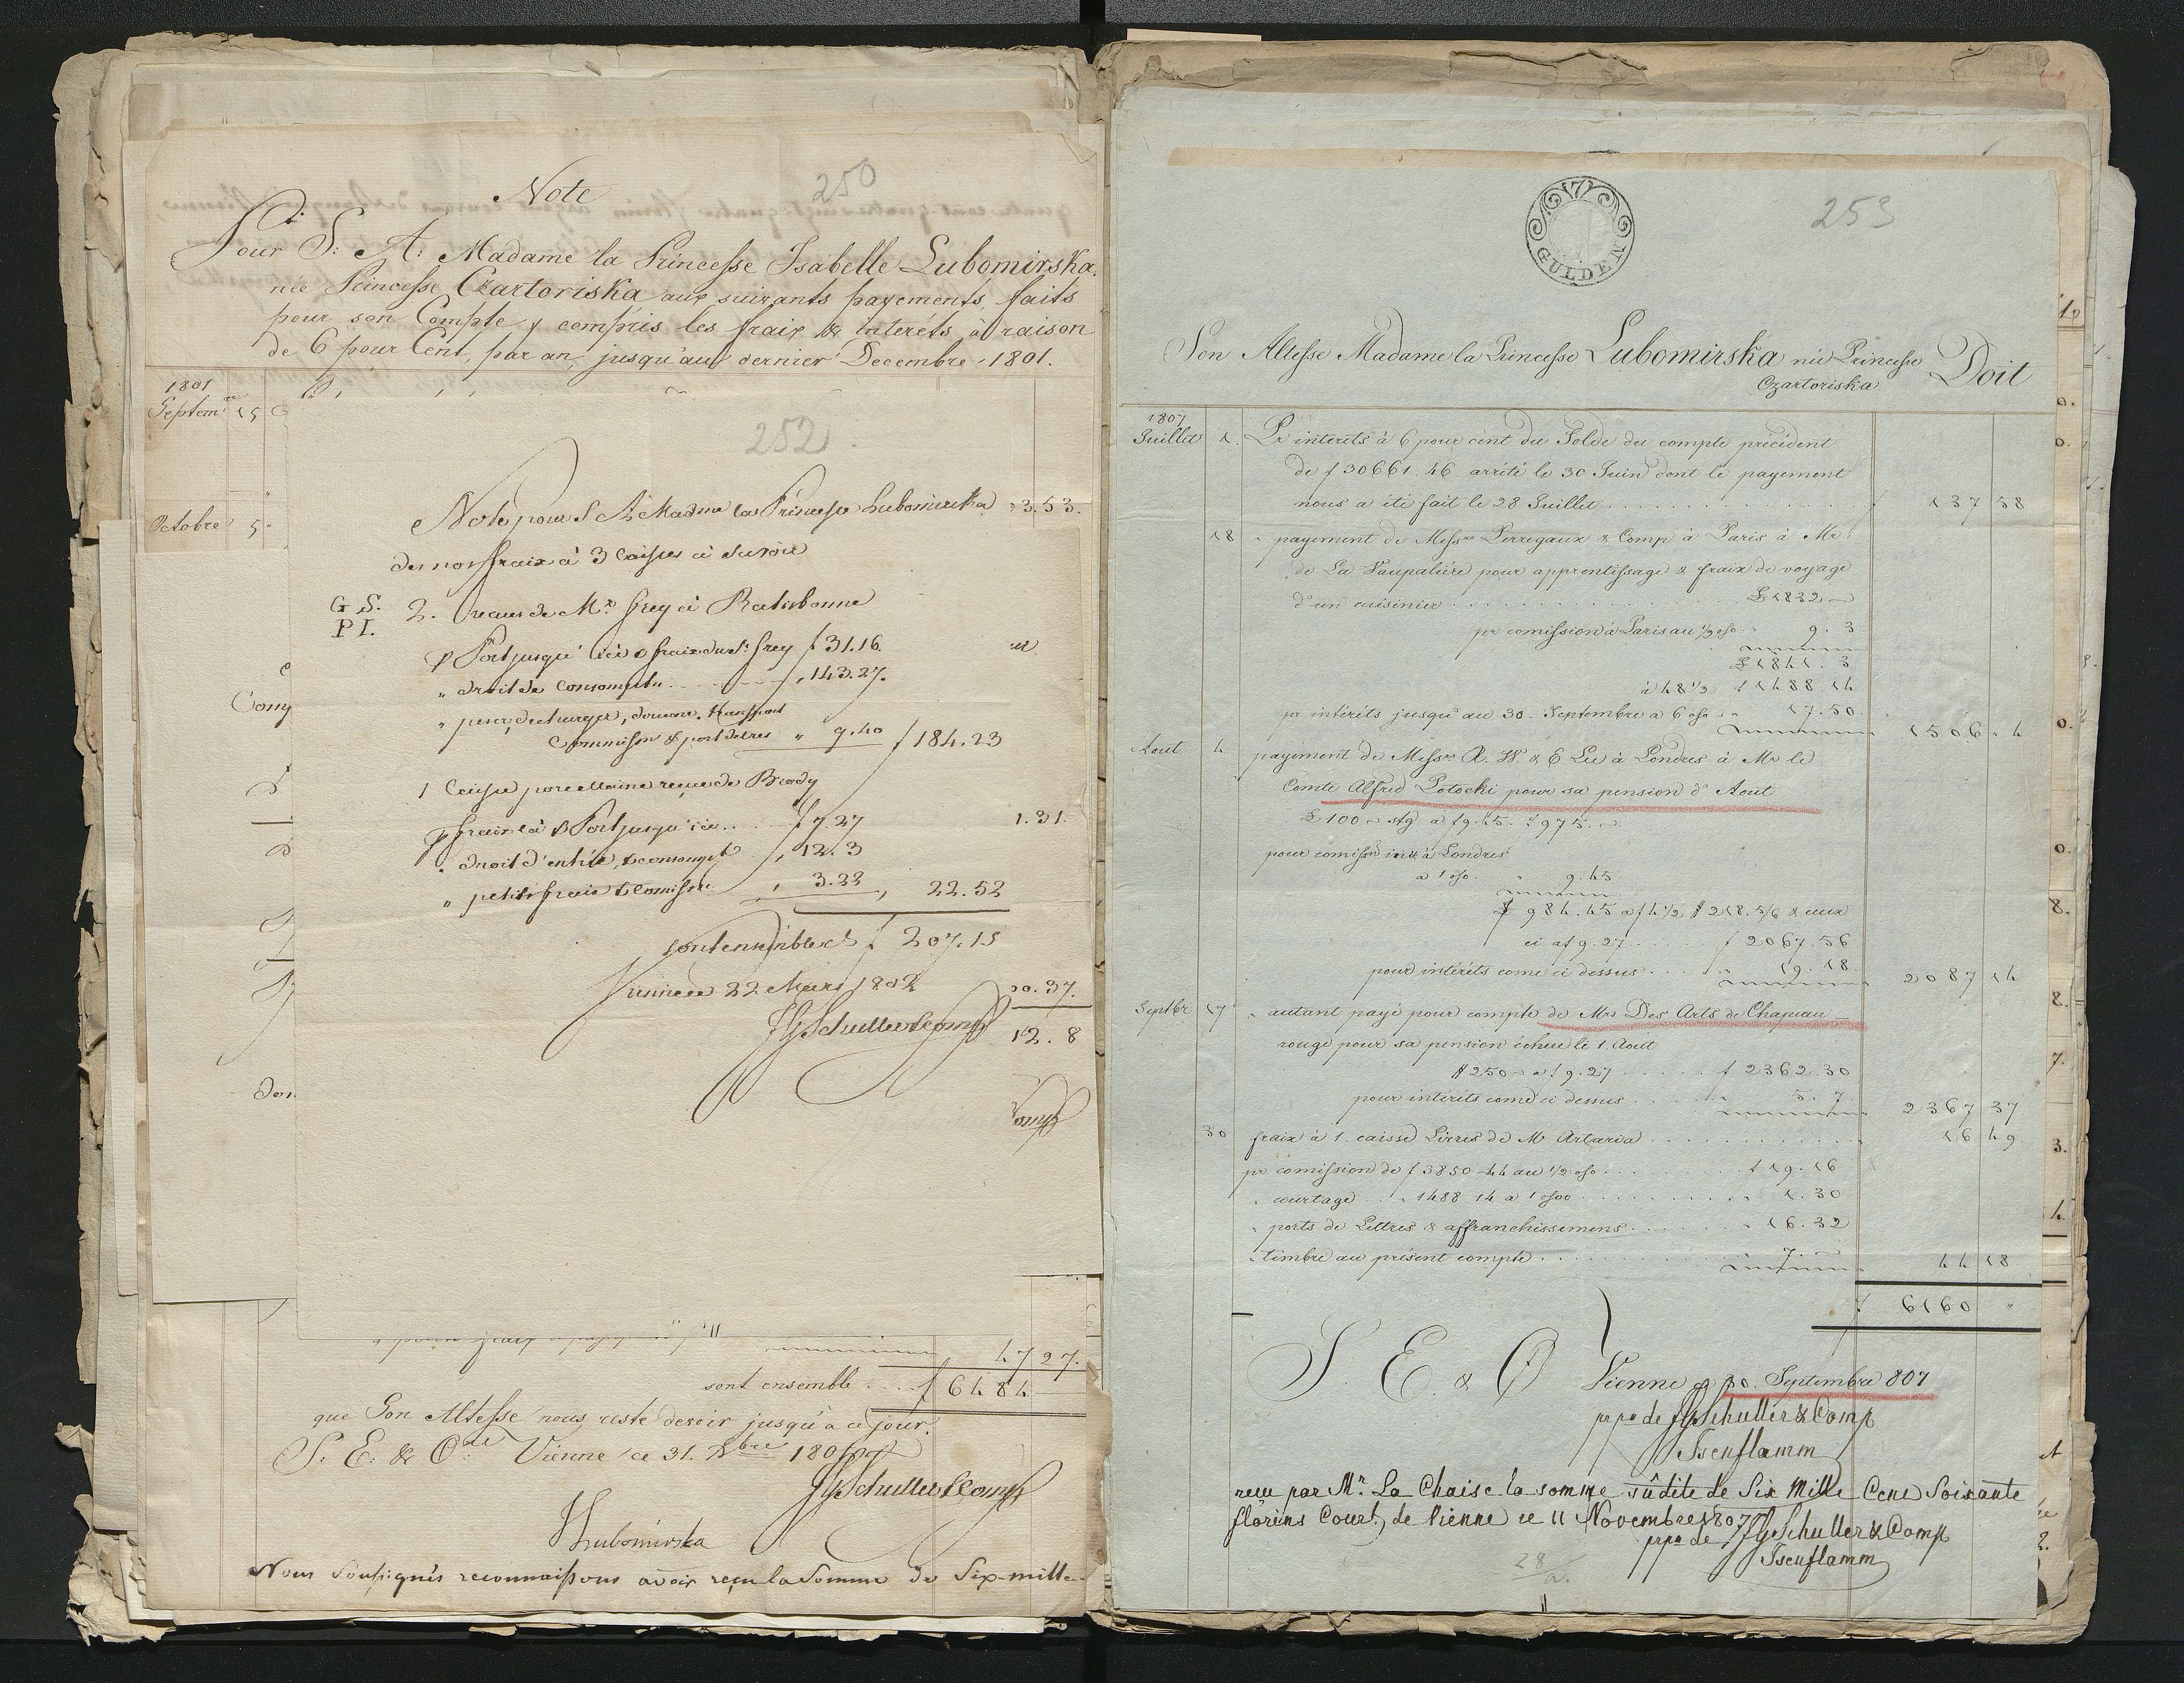 250
Note
Pour S: A: Madame la Princesse Isabelle Lubomirska.
née Princesse Czartoriska aux suivants payements faits
pour son Compte y compris les fraix & intérêts à raison
de 6 pour Cent par an jusqu'au dernier Decembre 1801.
1801
Septem.re 15
Octobre 5
Comp
252
Note pour S A Madme la Princesse Lubomirska
de nos fraix à 3 Caisses à Savoir
G S.
P I.
2. recues de Mr. Frey à Ratisbonne
p Port jusqu'ici & fraix du Sr. Frey f 31.16.
" droit de Consompt.n " 143.27.
" peser, decharger, douane, transport
Commission & port de lres " 9.40 f 184.23
1 Caisse porcellaine reçue de Brody
p fraix là & Port jusqu'ici .. f 7.27
" droit d'entrée, & consompt " 12.3
" petits fraix & Comission " 3.22 , 22.52
sont ensembles f 207.15
Vienne 22 Mars 1802
JG Schuller & Comp
3.53.
1.31.
20.37.
12.8
Comp
47 27.
sont ensemble .... f 6484
que Son Altesse nous reste devoir jusqu'à ce jour.
S. E. & O. Vienne ce 31. Xbre 1801
JG Schuller & Comp
Lubomirska
Nous Soussignés reconnaissons avoir reçu la Somme de Six-mille
7
GULDEN
253
Son Altesse Madame la Princesse Lubomirska née Princesse Doit
Czartoriska
1807
Juillet 1. Pr interets à 6 pour cent du Solde du compte précédent
de f 30661.46 arrêté le 30 Juin dont le payement
nous a été fait le 28 Juillet . . . . f 137 58
18 " payement de Messrs Perregaux & Comp à Paris à Mr
de La Vaupalière pour apprentissage & fraix de voyage
d'un cuisinier . . . . £ 1832
pr comission à Paris au ½ o/o " 9.3
£ 1841.3
à 48½ f 1488.14
pr intérêts jusqu'au 30. Septembre a 6 o/o " 17.50 1506 " 4
Aout 4 payement de Messrs R. W. & E Lee à Londres à Mr le
Comte Alfred Potocki pour sa pension d'Aout
£ 100 stg a f 9.45. f 975.
pour comission à Londres
a 1 o/o. " 9.45
f 984.45 a f 4½ # 218.5/6 & ceux
ci a f 9.27 . . . . f 2067.56
pour intérêts come ci dessus . . . . " 19.18 2087 14
Septbr 17 " autant payé pour compte de Mrs Des Arts de Chapeau
rouge pour sa pension échue le 1. Aout
# 250 a f 9.27 . . . . f 2362.30
pour intérêts come ci dessus . . . . " 5.7. 2367 37
30 fraix à 1. caisse Livres de Mr Artaria . . . . 16 49
pr comission de f 3850.44 au ½ o/o . . . . f 19.16
" courtage . . " 1488.14 a 1 o/oo . . . . " 1.30
" ports de Lettres & affranchissemens . . . . " 16.32
" timbre au présent compte . . . . " 7. 44 18
f 6160 "
S. E. & O Vienne ce 30. Septembre 807
prpa de JG Schuller & Comp
Isenflamm
recu par Mr. La Chaise la somme sûdite de Six Mille Cent Soixante
florins Court, de Vienne ce 11 Novembre 1807
prpa de JG Schuller & Comp
Isenflamm
28